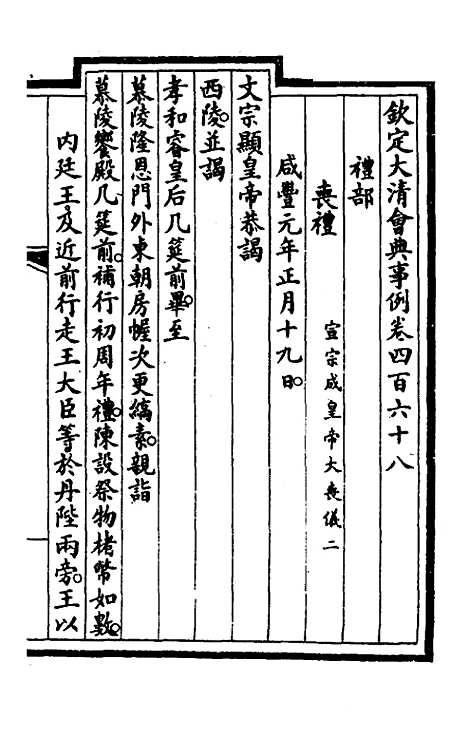 欽定大清會典事例卷四百六十八
禮部
喪禮 宣宗成皇帝大喪儀二
咸豐元年正月十九日。
文宗顯皇帝恭謁
西陵。並謁
孝和睿皇后几筵前。畢。至
慕陵隆恩門外東朝房幄次更縞素。親詣
慕陵饗殿几筵前。補行初周年禮。陳設祭物楮帛如數。
內廷王及近前行走王大臣等於丹陛兩旁。王以